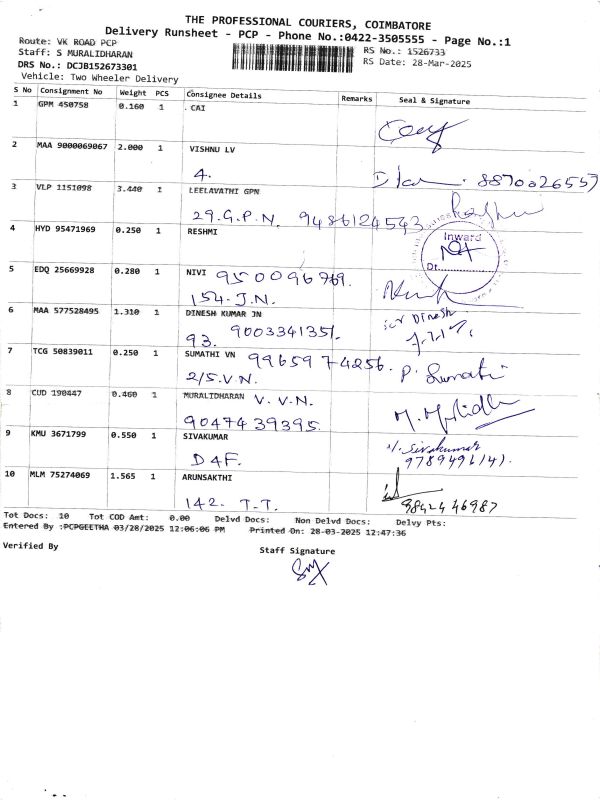 THE PROFESSIONAL COURIERS, COIMBATORE
Delivery Runsheet - PCP - Phone No.:0422-3505555 - Page No.:1
Route: VK ROAD PCP
Staff: S MURALIDHARAN
DRS No.: DCJB152673301
Vehicle: Two Wheeler Delivery
RS No.: 1526733
RS Date: 28-Mar-2025
S No Consignment No Weight PCS Consignee Details Remarks Seal & Signature
1 GPM 450758 0.160 1 CAI
2 MAA 9000069067 2.000 1 VISHNU LV
4. 8870026557
3 VLP 1151098 3.440 1 LEELAVATHI GPN
29.G.P.N. 9486124543
4 HYD 95471969 0.250 1 RESHMI
Inward
Dt.
5 EDQ 25669928 0.280 1 NIVI 950096769.
154-J.N.
6 MAA 577528495 1.310 1 DINESH KUMAR JN Dinesh
93. 9003341351.
7 TCG 50839011 0.250 1 SUMATHI VN 9965974256. P. Sumathi
2/5.V.N.
8 CUD 190447 0.460 1 MURALIDHARAN V.V.N.
9047439395.
9 KMU 3671799 0.550 1 SIVAKUMAR Sivakumar
D4F. 9789496141.
10 MLM 75274069 1.565 1 ARUNSAKTHI
142. T.T. 9842446987
Tot Docs: 10 Tot COD Amt: 0.00 Delvd Docs: Non Delvd Docs: Delvy Pts:
Entered By :PCPGEETHA 03/28/2025 12:06:06 PM Printed On: 28-03-2025 12:47:36
Verified By
Staff Signature